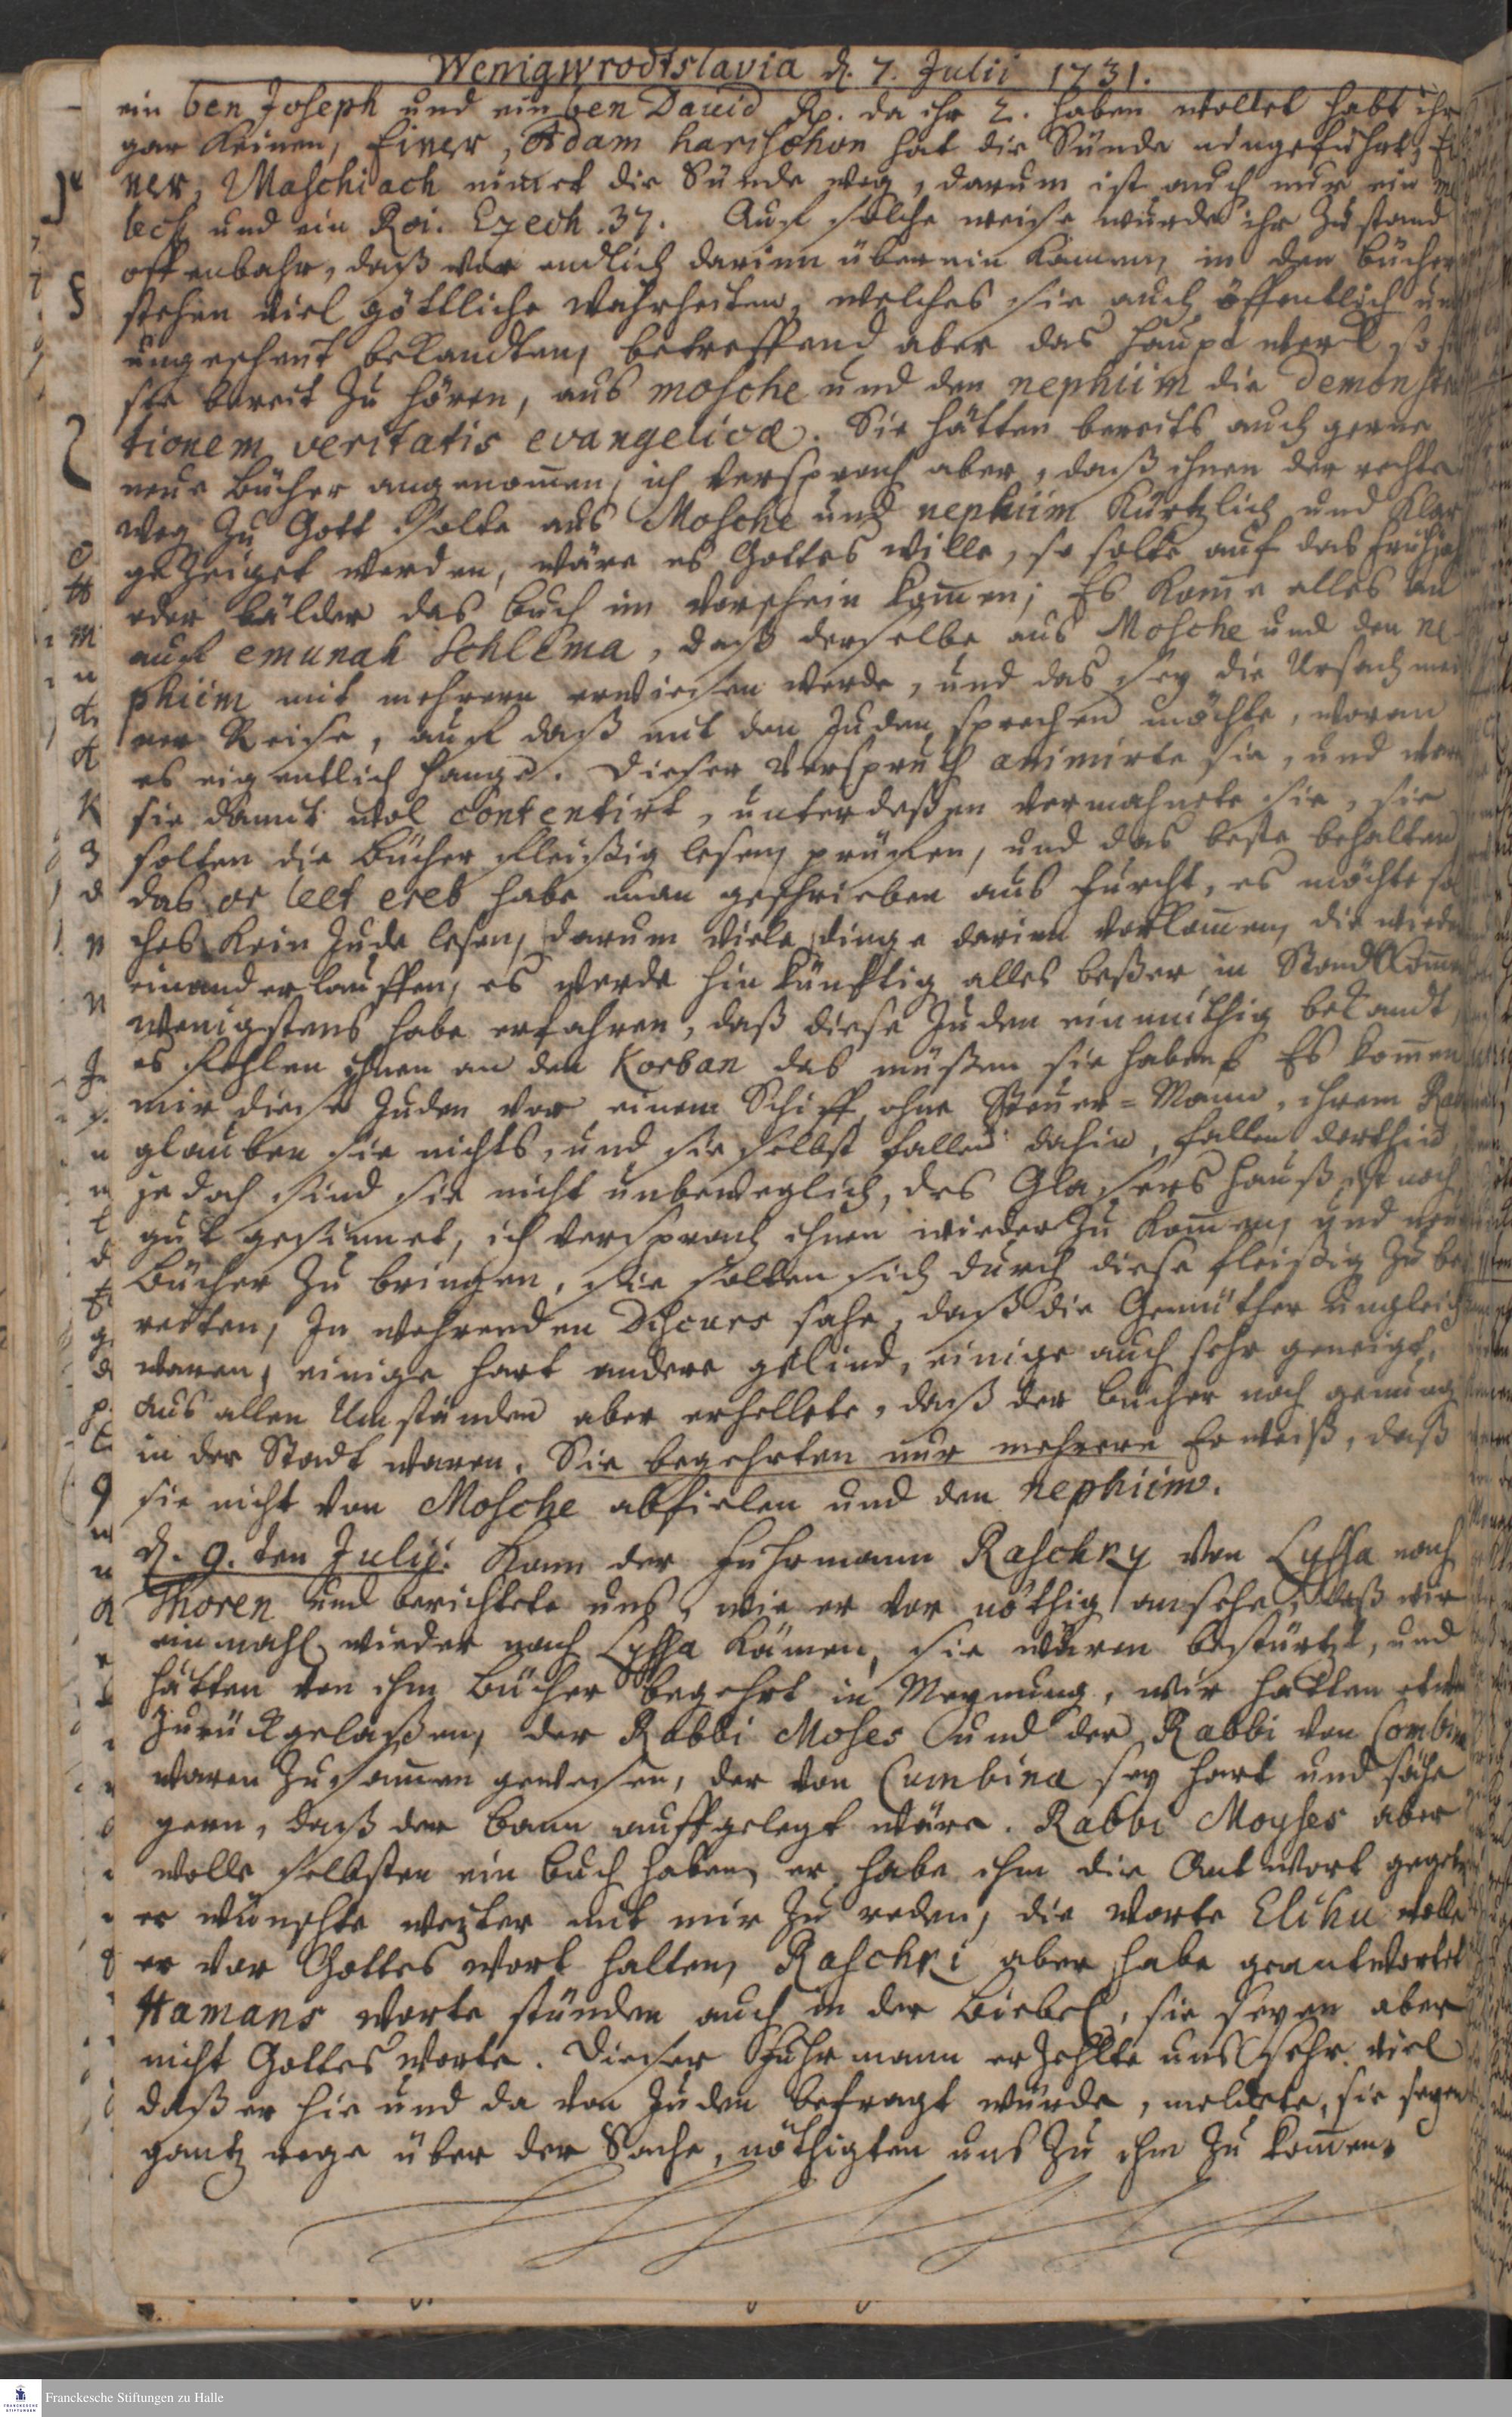 Wenigwrodtslavia d. 7. Julii 1731.
ein ben Joseph und ein ben David Rp. da ihr 2. haben wollet habt ihr
gar keinen, Einer, Adam harischon hat die Sünde eingeführt, Ei
ner, Maschiach nimet die Sünde weg, darum ist auch nur ein me
lech und ein Roi. Ezech. 37. Auf solche weise wurde ihr Zustand
offenbahr, daß wir endlich darinn überein kamen, in den Bücher
stehen viel göttliche Wahrheiten, welches sie auch öffentlich und
ungescheut bekandten, betreffend aber das Haupt werk so
sie bereit zu hören, aus Mosche und den nephiim die Demonstra
tionem veritatis evangelicæ. Sie hätten bereits auch gerne
neue Bücher angenom̄en, ich versprach aber, daß ihnen der rechte
weg zu Gott solte aus Mosche und nephiim kürtzlich und klar
gezeiget werden, wäre es Gottes wille, so solte auf das frühjah
oder bälder das buch im vorschein kom̄en; Es kom̄e alles an
auf emunah Schlema, daß derselbe aus Mosche und den ne
phiim mit mehrern erwiesen werde, und das sey die Ursach mei
ner Reise, auf daß mit den Juden sprechen möchte, woran
es eigentlich hange. Dieser Verspruch animirte sie, und waren
sie damit wol contentirt, unterdeßen vermahnete sie, sie
solten die Bücher fleißig lesen, prüfen, und das beste behalten
das or leet ereb habe man geschrieben aus furcht, es möchte sol
ches kein Jude lesen, darum viele dinge darinn vorkom̄en, die wieder
einander lauffen, es werde hin künfftig alles beßer in Stand kom̄en
Wenigstens habe erfahren, daß diese Juden einmüthig bekandt,
es fehlen ihnen an den Korban das müßen sie haben, Es kom̄en
mir diese Juden vor einem Schiff ohne Steuer-Mann, ihrem Rab
glauben sie nichts, und sie selbst fallen dahin, fallen dorthin,
jedoch sind sie nicht unbeweglich, des Glasers hauß ist noch
gut gesinnet, ich versprach ihnen wieder zu kom̄en, und neue
Bücher zu bringen, sie solten sich durch diese fleißig zu be
reiten, In wehrenden Discurs sahe, daß die Gemüther ungleich
waren, einige hart andere gelind, einige auch sehr geneigt,
Aus allen Umständen aber erhellete, daß der Bücher noch genung
in der Stadt waren. Sie begehrten nur mehrern Erweiß, daß
sie nicht von Mosche abfielen und den nephiim.
d. 9. ten July: Kam der Fuhrmann Raschky von Lyssa nach
Thoren und berichtete uns, wie er vor nöthig ansehe, daß wir
ein mahl wieder nach Lyssa kämen, sie wären bestürtzt, und
hätten von ihm Bücher begehrt in Meynung, wir hatten etwa
zurückgelaßen, der Rabbi Moses und der Rabbi von Combina
waren zusam̄en gewesen, der von Cumbina sey hart und sähe
gern, daß der bann auffgelegt wäre. Rabbi Moyses aber
wolle selbsten ein buch haben, er habe ihm die Antwort gegeben
er wünschte weiter mit mir zu reden, die Worte Elihu wolle
er vor Gottes wort halten, Raschki aber habe geantwortet
Hamans Worte stünden auch in der Biebel, sie seyen aber
nicht Gottes Worte. Dieser Fuhrmann erzehlte uns sehr viel
daß er hie und da von Juden befragt würde, meldete, sie seyen
gantz rege über der Sache, nöthigten uns zu ihm zu kom̄en.
Franckesche Stiftungen zu Halle